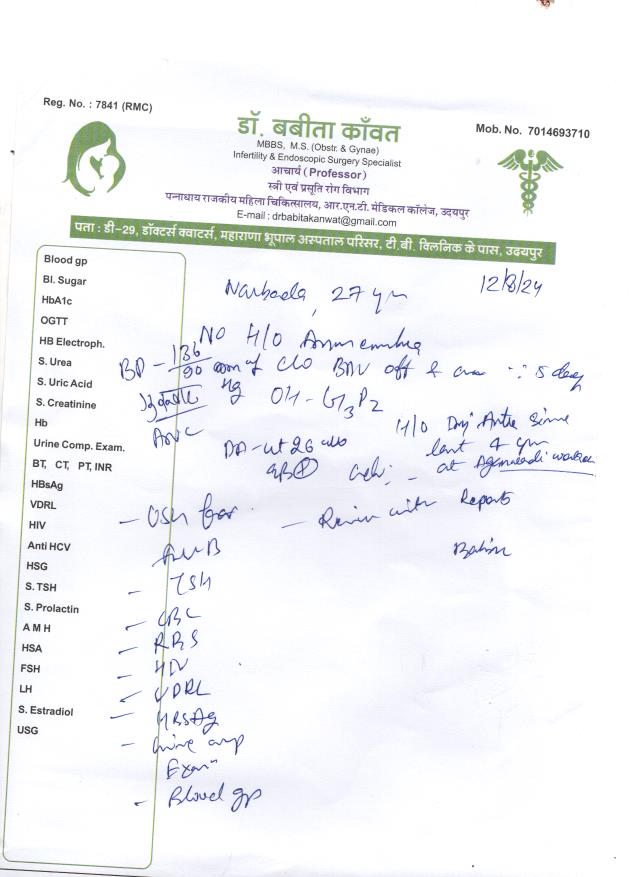 Reg. No. : 7841 (RMC)
डॉ. बबीता काँवत
MBBS, M.S. (Obstr. & Gynae)
Infertility & Endoscopic Surgery Specialist
आचार्य (Professor)
स्त्री एवं प्रसूति रोग विभाग
पन्नाधाय राजकीय महिला चिकित्सालय, आर.एन.टी. मेडिकल कॉलेज, उदयपुर
E-mail : drbabitakanwat@gmail.com
Mob. No. 7014693710
पता : डी-29, डॉक्टर्स क्वाटर्स, महाराणा भूपाल अस्पताल परिसर, टी.बी. क्लिनिक के पास, उदयपुर
Blood gp
Bl. Sugar
HbA1c
OGTT
HB Electroph.
S. Urea
S. Uric Acid
S. Creatinine
Hb
Urine Comp. Exam.
BT, CT, PT, INR
HBsAg
VDRL
HIV
Anti HCV
HSG
S. TSH
S. Prolactin
A M H
HSA
FSH
LH
S. Estradiol
USG
Narbada, 27 yr
12/8/24
No H/O
BP - 136/90 mm of Hg
C/O off & on 5 days
OH - G3P2
H/O Since
last 4 yr
at
- Review with Reports
- TSH
- CBC
- RBS
- HIV
- VDRL
- HBsAg
- Urine comp
Exam
- Blood gp